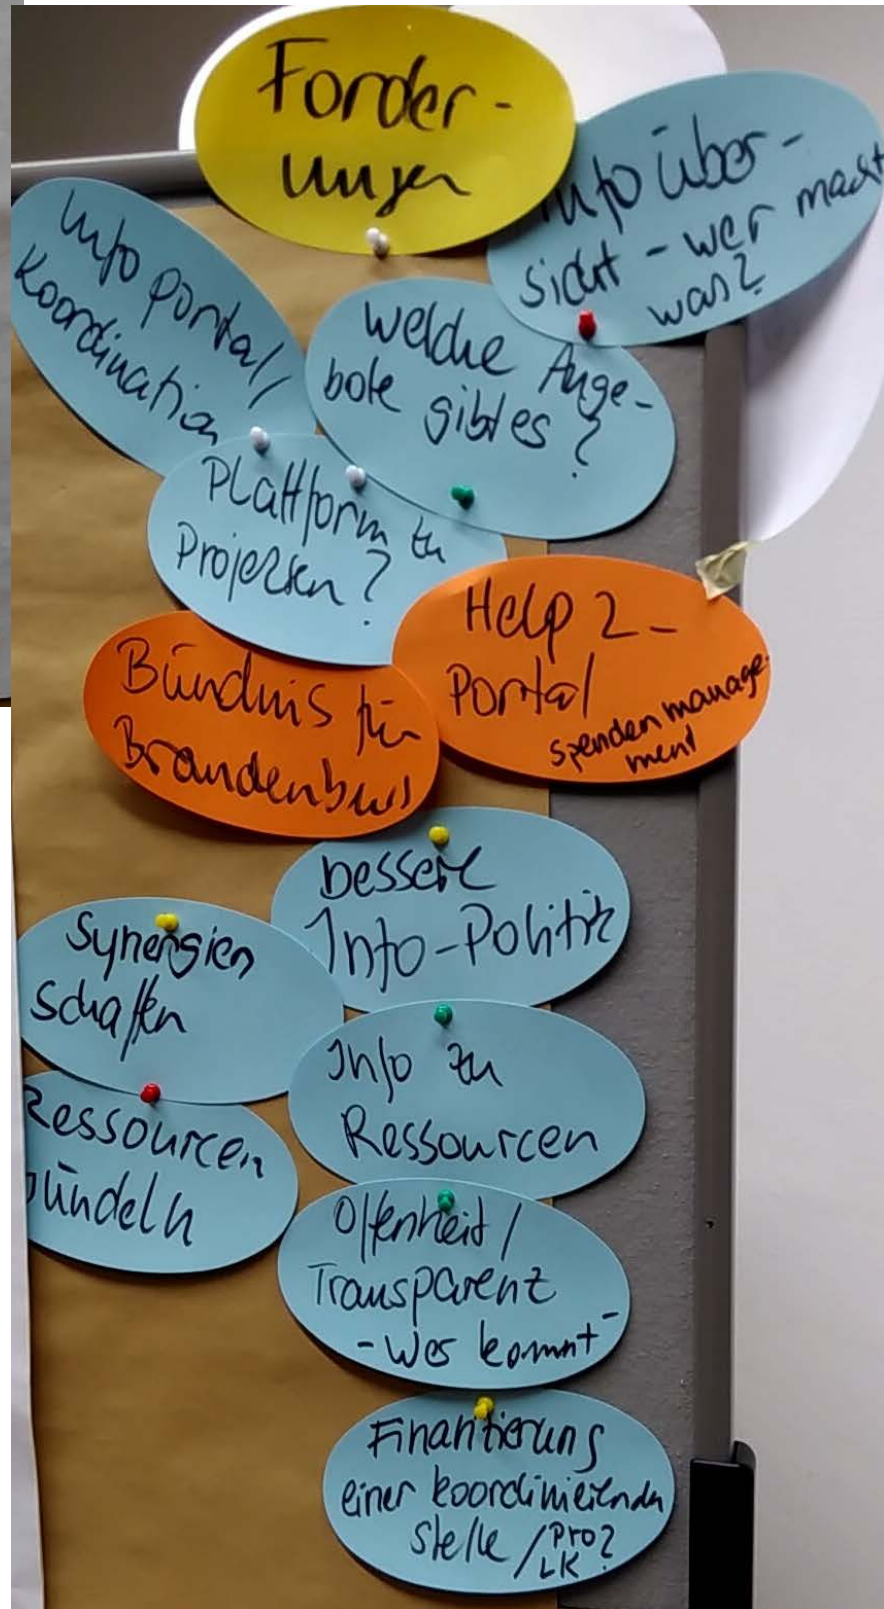 Forder-
ungen
Info über-
sicht - wer macht
was?
Info portal/
Koordination
welche Ange-
bote gibt es?
Plattform zu
Projekten?
Help 2 -
Portal
spenden manage-
ment
Bündnis für
Brandenburg
bessere
Info-Politik
Synergien
schaffen
Info zu
Ressourcen
Ressourcen
bündeln
Offenheit /
Transparenz
- was kommt -
Finanzierung
einer koordinierenden
Stelle / pro
LK?